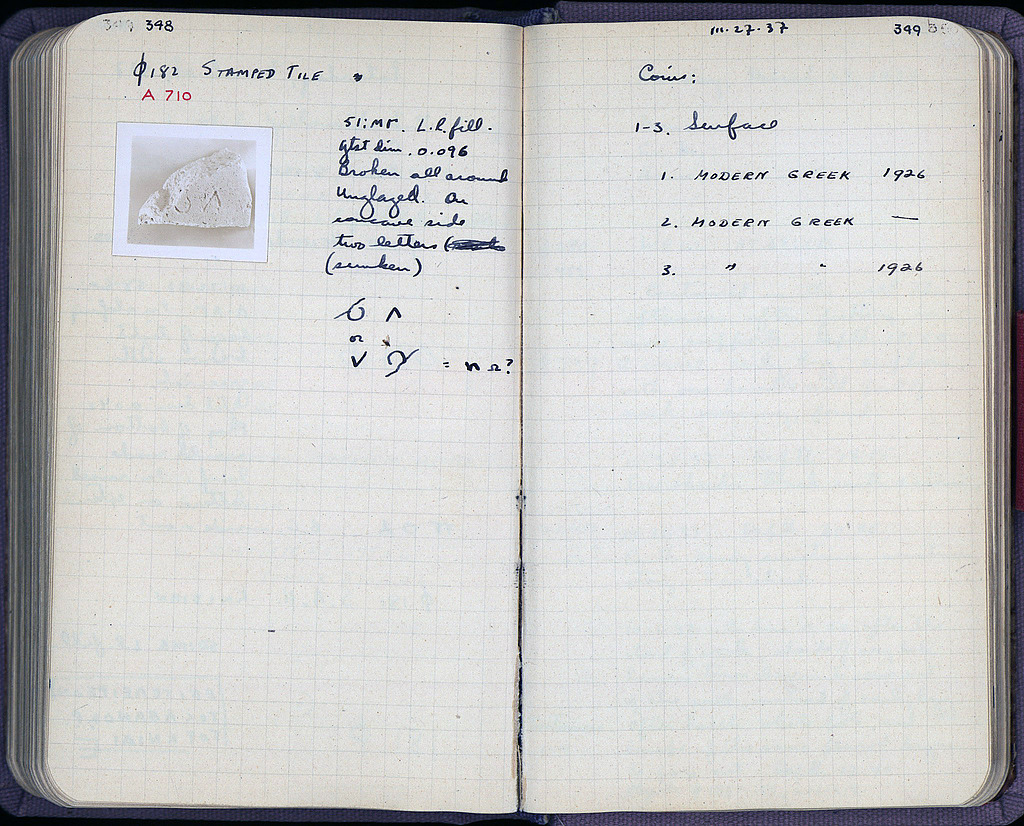 348
φ182 STAMPED TILE
A 710
51:ΜΓ. L.R. fill.
gtst dim. 0.096
Broken all around
Unglazed. On
concave side
two letters (
(sunken)
Ʌ
or
V = Ω?
III·27·37 349
Coins:
1-3. Surface
1. MODERN GREEK 1926
2. MODERN GREEK —
3. " " 1926